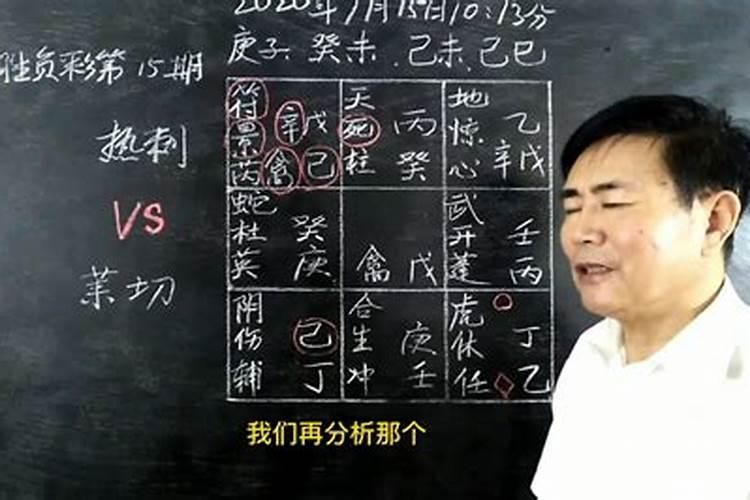 2020年7月15日10:13分
庚子 癸未 己未 己巳
胜负彩第15期
热刺
VS
莱切
符 辛戊
景
芮 禽 己
天 丙
死
柱 癸
地 乙
惊 辛戊
心
蛇 癸
杜
英 庚
禽 戊
武 壬
开
蓬 丙
阴 己
伤
辅 丁
合 庚
生
冲 壬
虎 丁
休
任 乙
我们再分析那个